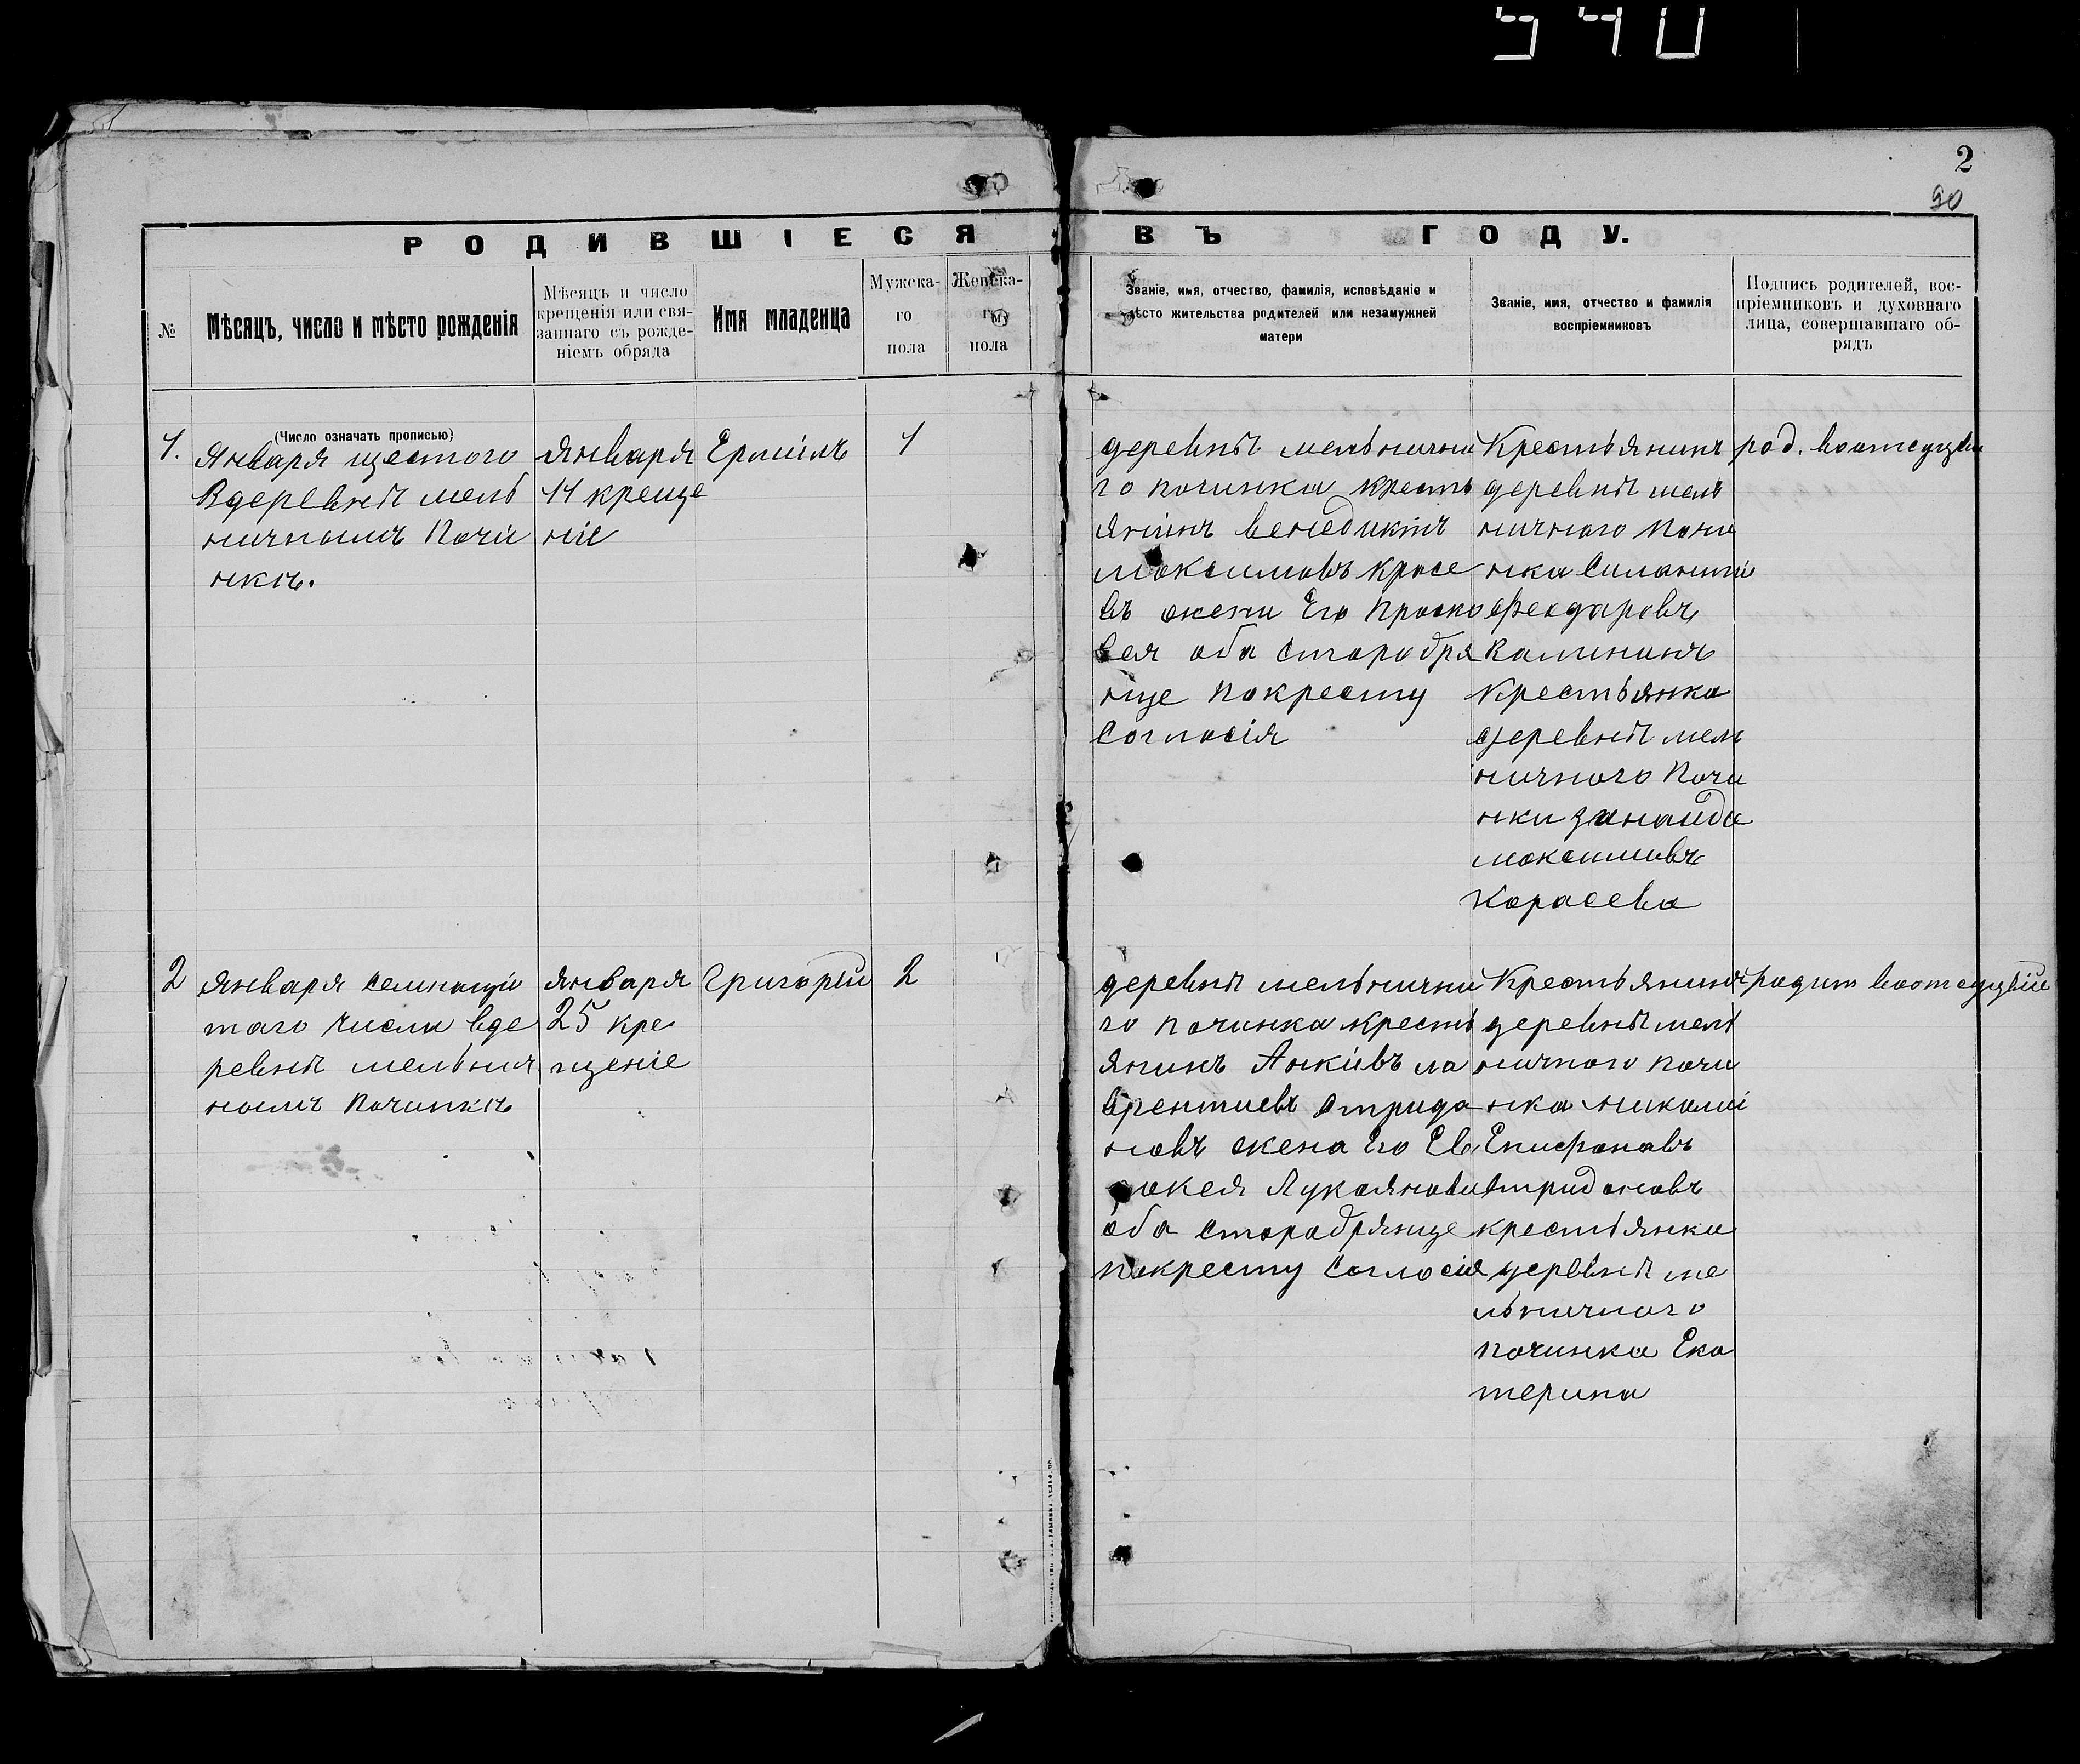 540
2
90
РОДИВШІЕСЯ ВЪ ГОДУ.
№
Мѣсяцъ, число и мѣсто рожденія
Мѣсяцъ и число
крещенія или свя-
заннаго съ рожде-
ніемъ обряда
Имя младенца
Мужска-
го
пола
Женска-
го
пола
Званіе, имя, отчество, фамилія, исповѣданіе и
мѣсто жительства родителей или незамужней
матери
Званіе, имя, отчество и фамилія
воспріемниковъ
Подпись родителей, вос-
пріемниковъ и духовнаго
лица, совершавшаго об-
рядъ
(Число означать прописью)
1.
Января щестого
Вдеревнѣ мель
ничномъ Почи
нкѣ.
Января
11 креще
ніе
Ермилъ
1
деревнѣ мельнично
го починка кресть
янинъ венедиктъ
моксимовъ Кросе
въ жени Его Проско
вея оба Старобря
нце покресту
Согласія
Крестьянинъ
деревнѣ мель
ничного почи
нка Силантий
Феодаровъ
Калининъ
Крестьянка
деревнѣ мель
ничного Почи
нки зинаида
моксимовъ
Корасева
род. воотсуцвии
2
Января семнацѣ
таго числи вде
ревнѣ мельнич
номъ Починкѣ
Января
25 кре
щеніе
Григорій
2
деревнѣ мельнично
го починка кресть
янинъ Анкивъ ла
врентиевъ Стрида
новъ жена Его Ев
докея Лукояновы
оба Старобрянце
покресту Согласия
Крестьянинъ
деревнѣ мель
ничного почи
нка николай
Епифановъ
Стридоновъ
крестьянка
деревнѣ ме
льничного
починка Ека
терина
родит воотсуцвіи